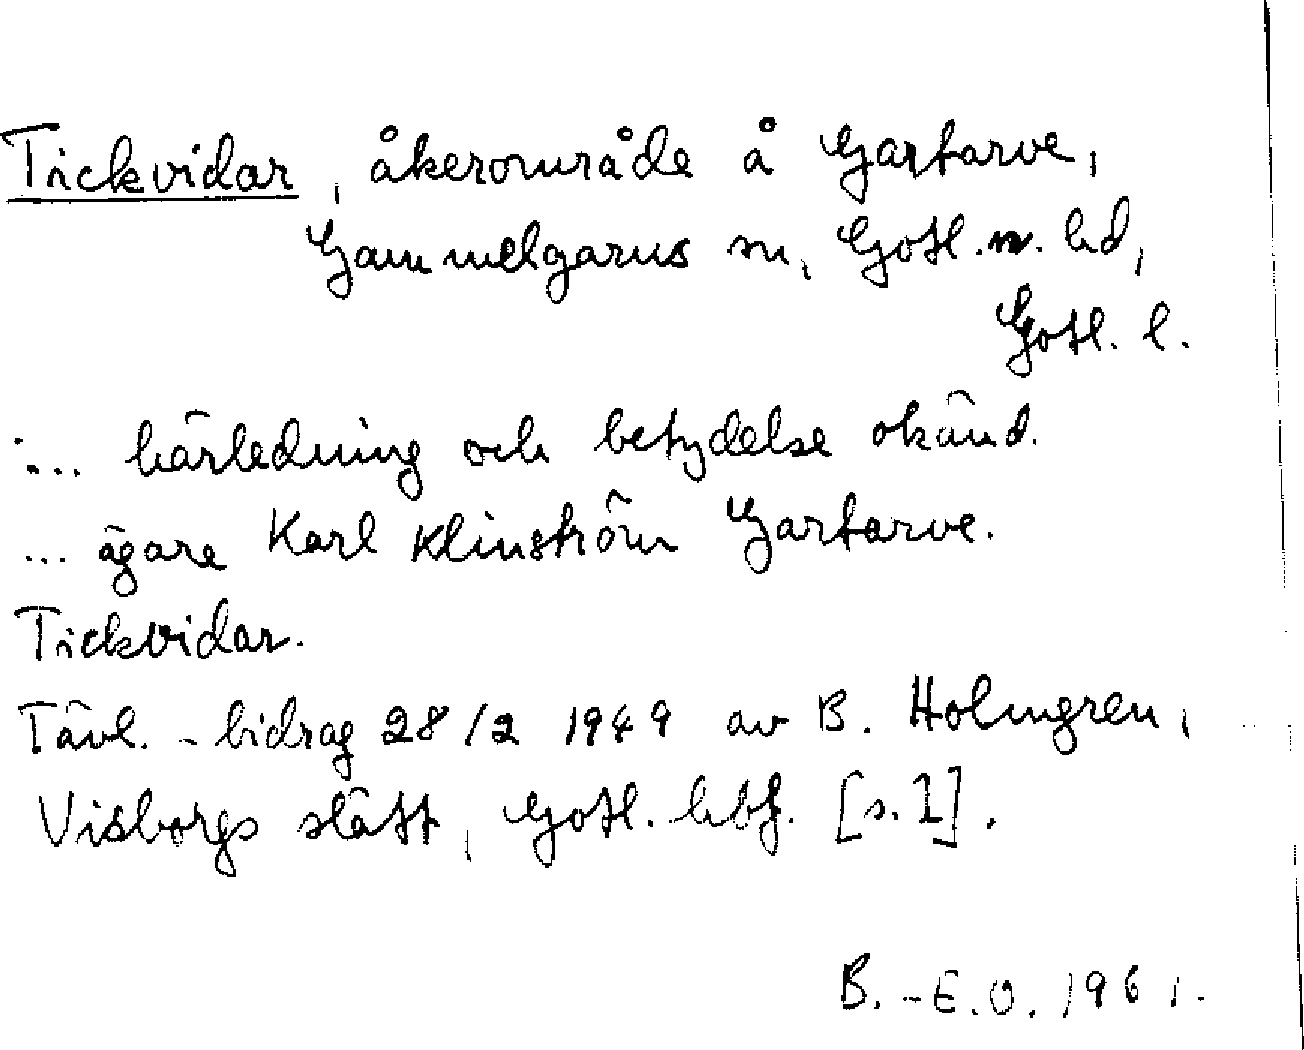 Tickvidar, åkerområde å Gartarve,
Gammelgarns sn, Gotl. n. hd,
Gotl. l.
:... härledning och betydelse okänd.
... ägare Karl Klinström Gartarve.
Tickvidar.
Tävl.-bidrag 28/2 1949 av B. Holmgren,
Visborgs slätt, Gotl. hbf. [s. 1].
B.-E. O. 1961.